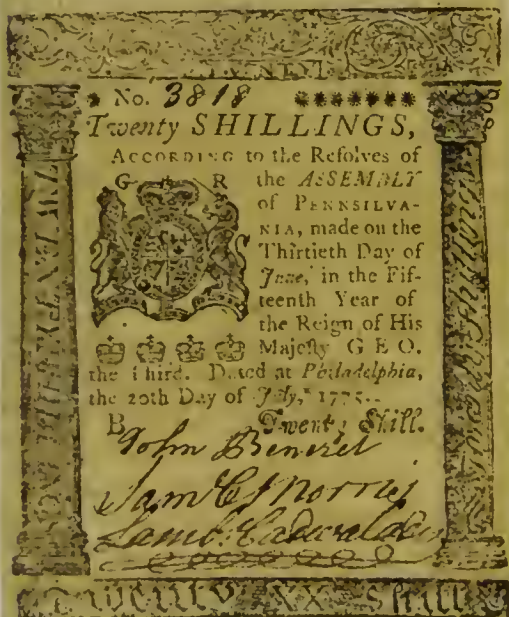 No. 3818
Twenty SHILLINGS,
ACCORDING to the Reſolves of
G R the ASSEMBLY
of PENNSILVA-
NIA, made on the
Thirtieth Day of
June, in the Fif-
teenth Year of
the Reign of His
Majeſty GEO.
the Third. Dated at Philadelphia,
the 20th Day of July, 1775.
B Twenty Shill.
John Benezet
Saml C Morris
Lamb. Cadwalader
XX Shill